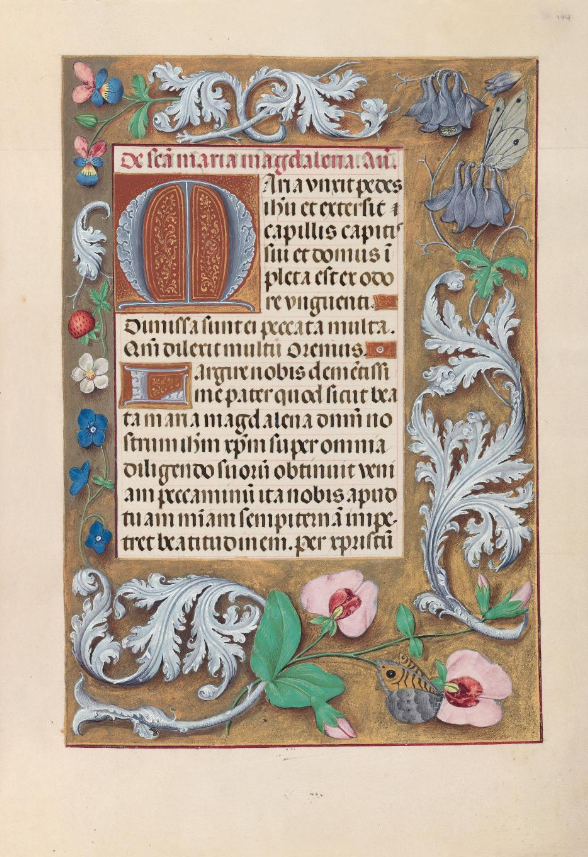 De scã maria magdalena. Añ.
Maria vnxit pedes
ihũ et extersit
capillis capitis
sui et domus ĩ
pleta est ex odo
re vnguenti.
Dimissa sunt ei peccata multa.
Qm̃ dilexit multũ Oremus.
Largire nobis clemẽtissi
me pater quod sicut bea
ta maria magdalena dñm no
strum ihm̃ xp̃m super omnia
diligendo suorũ obtinuit veni
am peccaminũ ita nobis apud
tuam miãm sempiternã impe-
tret beatitudinem. per xpristũ